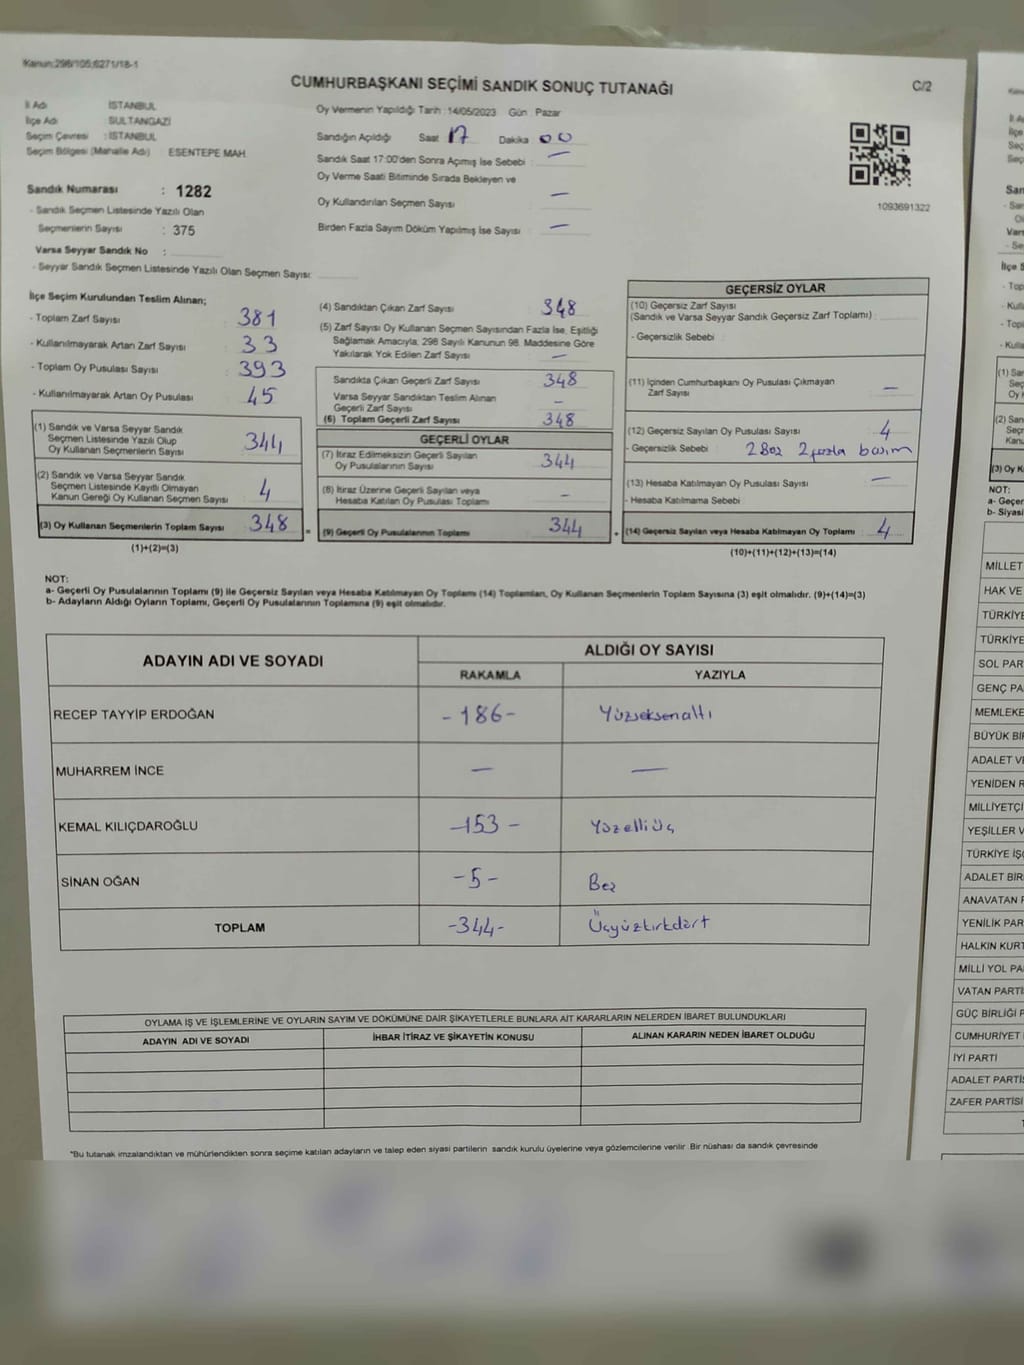 Kanun:298/105;6271/18-1
CUMHURBAŞKANI SEÇİMİ SANDIK SONUÇ TUTANAĞI
C/2
İl Adı İSTANBUL
İlçe Adı : SULTANGAZİ
Seçim Çevresi : İSTANBUL
Seçim Bölgesi (Mahalle Adı) : ESENTEPE MAH.
Sandık Numarası : 1282
- Sandık Seçmen Listesinde Yazılı Olan
Seçmenlerin Sayısı : 375
Varsa Seyyar Sandık No :
- Seyyar Sandık Seçmen Listesinde Yazılı Olan Seçmen Sayısı:
Oy Vermenin Yapıldığı Tarih :14/05/2023 Gün : Pazar
Sandığın Açıldığı Saat 17 Dakika 00
Sandık Saat 17:00'den Sonra Açımış İse Sebebi : —
Oy Verme Saati Bitiminde Sırada Bekleyen ve
Oy Kullandırılan Seçmen Sayısı —
Birden Fazla Sayım Döküm Yapılmış İse Sayısı : —
1093691322
İlçe Seçim Kurulundan Teslim Alınan;
- Toplam Zarf Sayısı 381
- Kullanılmayarak Artan Zarf Sayısı 33
- Toplam Oy Pusulası Sayısı 393
- Kullanılmayarak Artan Oy Pusulası 45
(1) Sandık ve Varsa Seyyar Sandık
Seçmen Listesinde Yazılı Olup
Oy Kullanan Seçmenlerin Sayısı 344
(2) Sandık ve Varsa Seyyar Sandık
Seçmen Listesinde Kayıtlı Olmayan
Kanun Gereği Oy Kullanan Seçmen Sayısı 4
(3) Oy Kullanan Seçmenlerin Toplam Sayısı 348
(1)+(2)=(3)
(4) Sandıktan Çıkan Zarf Sayısı 348
(5) Zarf Sayısı Oy Kullanan Seçmen Sayısından Fazla İse, Eşitliği
Sağlamak Amacıyla, 298 Sayılı Kanunun 98. Maddesine Göre
Yakılarak Yok Edilen Zarf Sayısı —
Sandıkta Çıkan Geçerli Zarf Sayısı 348
Varsa Seyyar Sandıktan Teslim Alınan
Geçerli Zarf Sayısı –
(6) Toplam Geçerli Zarf Sayısı 348
GEÇERLİ OYLAR
(7) İtiraz Edilmeksizin Geçerli Sayılan
Oy Pusulalarının Sayısı 344
(8) İtiraz Üzerine Geçerli Sayılan veya
Hesaba Katılan Oy Pusulası Toplamı –
= (9) Geçerli Oy Pusulalarının Toplamı 344
GEÇERSİZ OYLAR
(10) Geçersiz Zarf Sayısı
(Sandık ve Varsa Seyyar Sandık Geçersiz Zarf Toplamı) :
- Geçersizlik Sebebi :
(11) İçinden Cumhurbaşkanı Oy Pusulası Çıkmayan
Zarf Sayısı —
(12) Geçersiz Sayılan Oy Pusulası Sayısı 4
- Geçersizlik Sebebi : 2 Boş 2 fazla basım
(13) Hesaba Katılmayan Oy Pusulası Sayısı —
- Hesaba Katılmama Sebebi :
+ (14) Geçersiz Sayılan veya Hesaba Katılmayan Oy Toplamı 4
(10)+(11)+(12)+(13)=(14)
NOT:
a- Geçerli Oy Pusulalarının Toplamı (9) ile Geçersiz Sayılan veya Hesaba Katılmayan Oy Toplamı (14) Toplamları, Oy Kullanan Seçmenlerin Toplam Sayısına (3) eşit olmalıdır. (9)+(14)=(3)
b- Adayların Aldığı Oyların Toplamı, Geçerli Oy Pusulalarının Toplamına (9) eşit olmalıdır.
ADAYIN ADI VE SOYADI
ALDIĞI OY SAYISI
RAKAMLA YAZIYLA
RECEP TAYYİP ERDOĞAN -186- Yüzseksenaltı
MUHARREM İNCE — —
KEMAL KILIÇDAROĞLU -153- Yüzelliüç
SİNAN OĞAN -5- Beş
TOPLAM -344- Üçyüzkırkdört
OYLAMA İŞ VE İŞLEMLERİNE VE OYLARIN SAYIM VE DÖKÜMÜNE DAİR ŞİKAYETLERLE BUNLARA AİT KARARLARIN NELERDEN İBARET BULUNDUKLARI
ADAYIN ADI VE SOYADI İHBAR İTİRAZ VE ŞİKAYETİN KONUSU ALINAN KARARIN NEDEN İBARET OLDUĞU
*Bu tutanak imzalandıktan ve mühürlendikten sonra seçime katılan adayların ve talep eden siyasi partilerin sandık kurulu üyelerine veya gözlemcilerine verilir. Bir nüshası da sandık çevresinde
NOT:
a- Geçer
b- Siyasi
MİLLET
HAK VE
TÜRKİYE
TÜRKİYE
SOL PAR
GENÇ PA
MEMLEKE
BÜYÜK Bİ
ADALET VE
YENİDEN R
MİLLİYETÇİ
YEŞİLLER V
TÜRKİYE İŞ
ADALET BİR
ANAVATAN P
YENİLİK PAR
HALKIN KURT
MİLLİ YOL PA
VATAN PARTİS
GÜÇ BİRLİĞİ P
CUMHURİYET
İYİ PARTİ
ADALET PARTİS
ZAFER PARTİSİ